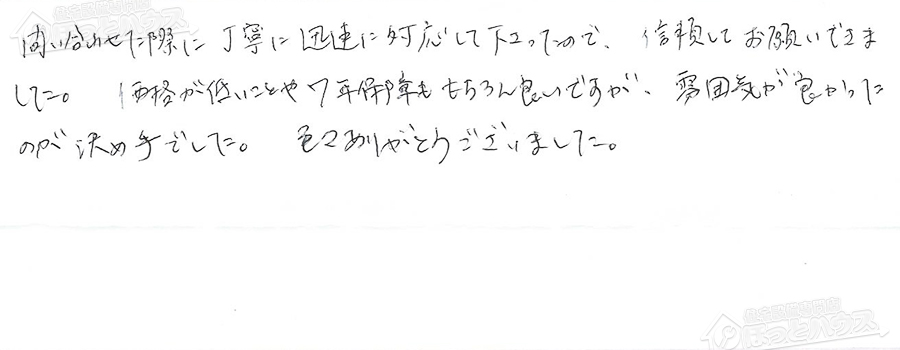 問い合わせた際に丁寧に迅速に対応して下さったので、信頼してお願いできま
した。価格が低いことや7年保障もちろん良いですが、雰囲気が良かった
のが決め手でした。色々ありがとうございました。
ほっとハウス